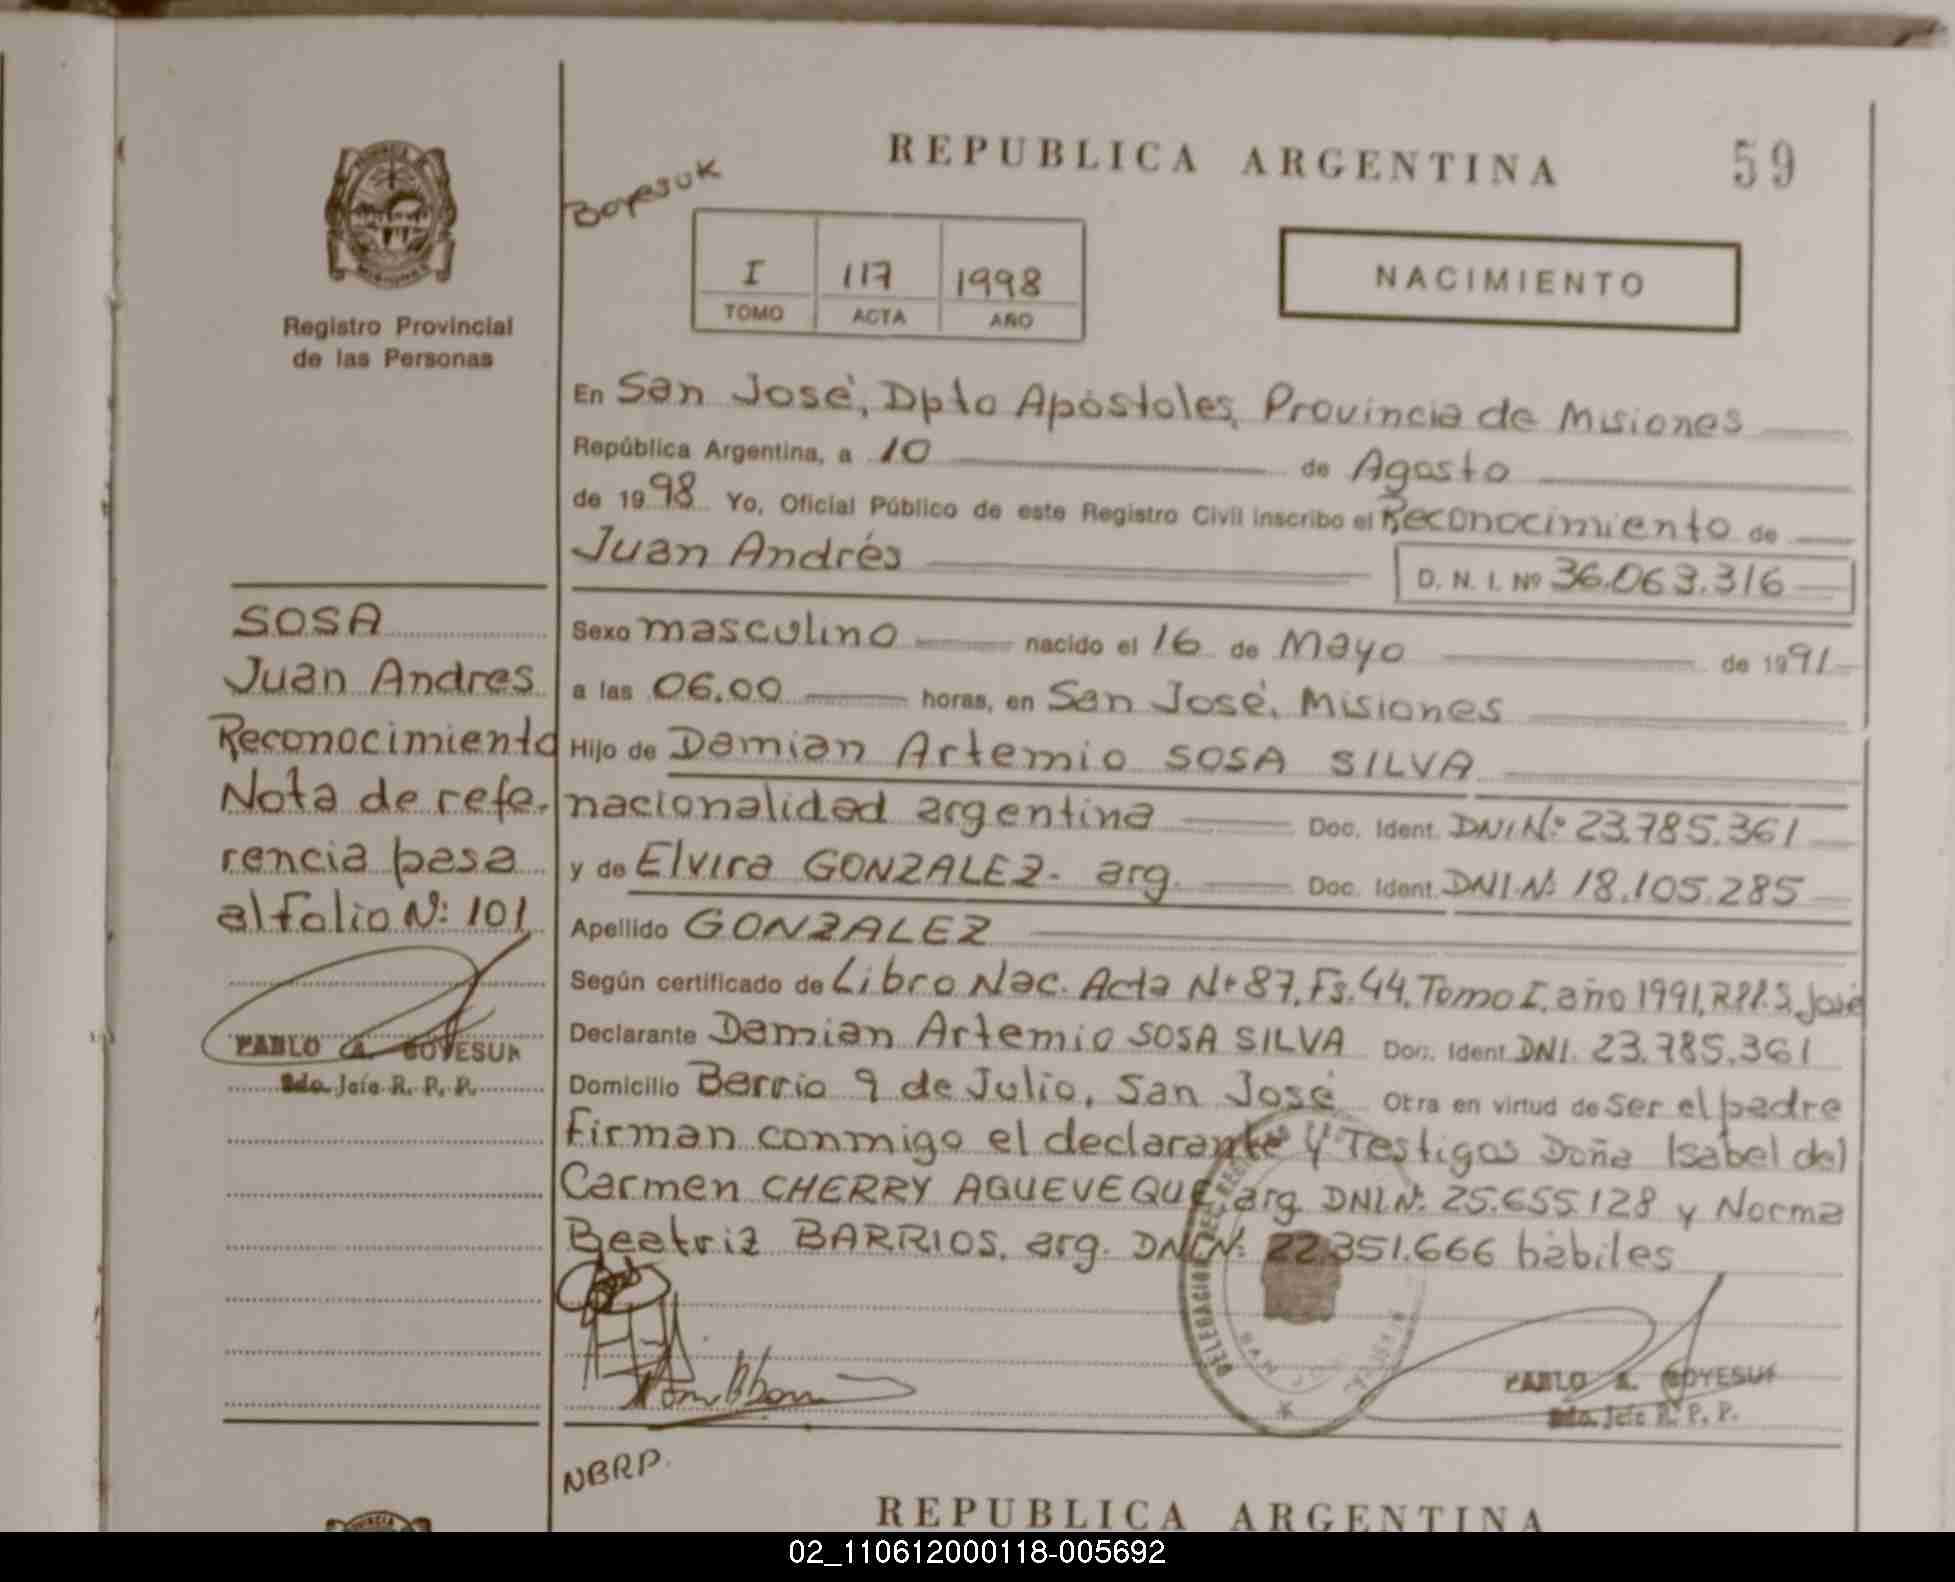 REPUBLICA ARGENTINA
59
Boyesuk
I 117 1998
TOMO ACTA AÑO
NACIMIENTO
Registro Provincial
de las Personas
En San José, Dpto Apóstoles, Provincia de Misiones
República Argentina, a 10 de Agosto
de 1998 Yo, Oficial Público de este Registro Civil inscribo el Reconocimiento de
Juan Andrés D. N. I. Nº 36.063.316
Sexo masculino nacido el 16 de Mayo de 1991
a las 06.00 horas, en San José, Misiones
Hijo de Damian Artemio SOSA SILVA
nacionalidad argentina Doc. Ident. DNI Nº 23.785.361
y de Elvira GONZALEZ- arg. Doc. Ident. DNI.Nº 18.105.285
Apellido GONZALEZ
Según certificado de Libro Nac. Acta Nº 87, Fs. 44, Tomo I, año 1991, R.P.P.S. José
Declarante Damian Artemio SOSA SILVA Doc. Ident DNI. 23.785.361
Domicilio Barrio 9 de Julio, San José Otra en virtud de ser el padre
Firman conmigo el declarante y Testigos Doña Isabel del
Carmen CHERRY AQUEVEQUE, arg. DNI.Nº 25.655.128 y Norma
Beatriz BARRIOS, arg. DNI.Nº 22.351.666 hábiles
SOSA
Juan Andres
Reconocimiento
Nota de refe-
rencia pasa
al folio Nº: 101
PABLO A. BOYESUK
Sdo. Jefe R. P. P.
PABLO A. BOYESUK
Sdo. Jefe R. P. P.
NBRP.
REPUBLICA ARGENTINA
02_110612000118-005692